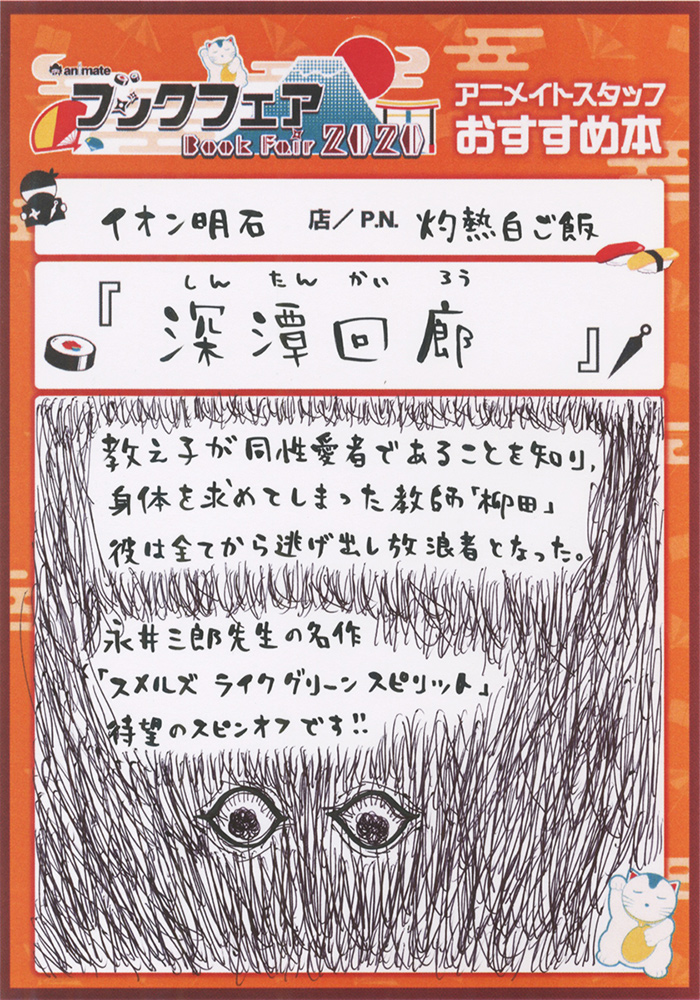 animate
ブックフェア
Book Fair 2020
アニメイトスタッフ
おすすめ本
イオン明石 店/P.N. 灼熱白ご飯
しんたんかいろう
『深潭回廊』
教え子が同性愛者であることを知り、
身体を求めてしまった教師「柳田」
役は全てから逃げ出し放浪者となった。
永井三郎先生の名作
「スメルズ ライク グリーン スピリット」
待望のスピンオフです!!